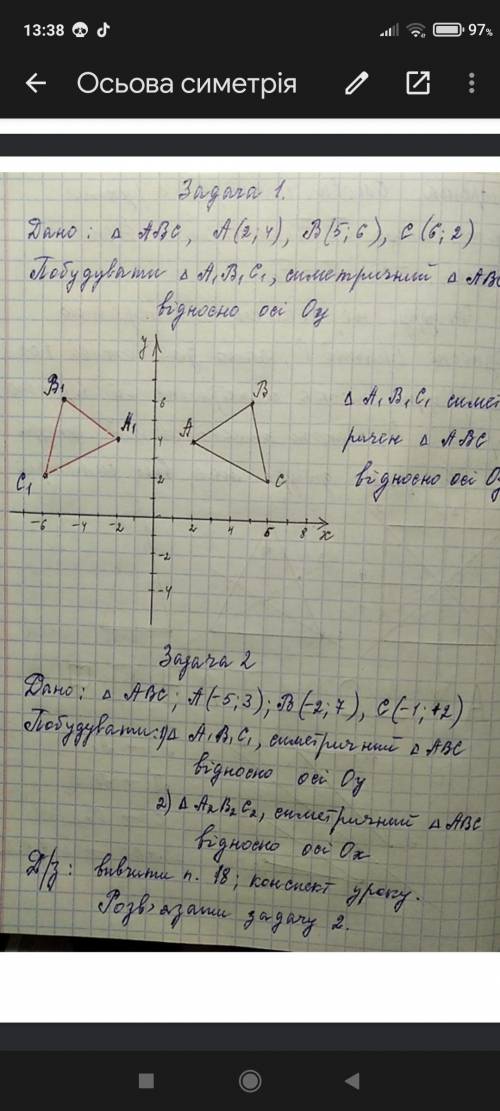 13:38
97%
Осьова симетрія
Задача 1.
Дано: △ ABC, A(2;4), B(5;6), C(6;2)
Побудувати △ A₁B₁C₁, симетричний △ ABC
відносно осі Oy
y
B₁
6
B
△ A₁B₁C₁ симет
A₁
4
A
рачен △ ABC
C₁
2
C
відносно осі Oy
-6 -4 -2 2 4 6 8 x
-2
-4
Задача 2
Дано: △ ABC; A(-5;3); B(-2;7), C(-1;+2)
Побудувати: 1) △ A₁B₁C₁, симетричний △ ABC
відносно осі Oy
2) △ A₂B₂C₂, симетричний △ ABC
відносно осі Ox
Д/з: вивчити п. 18; конспект уроку.
Розв'язати задачу 2.